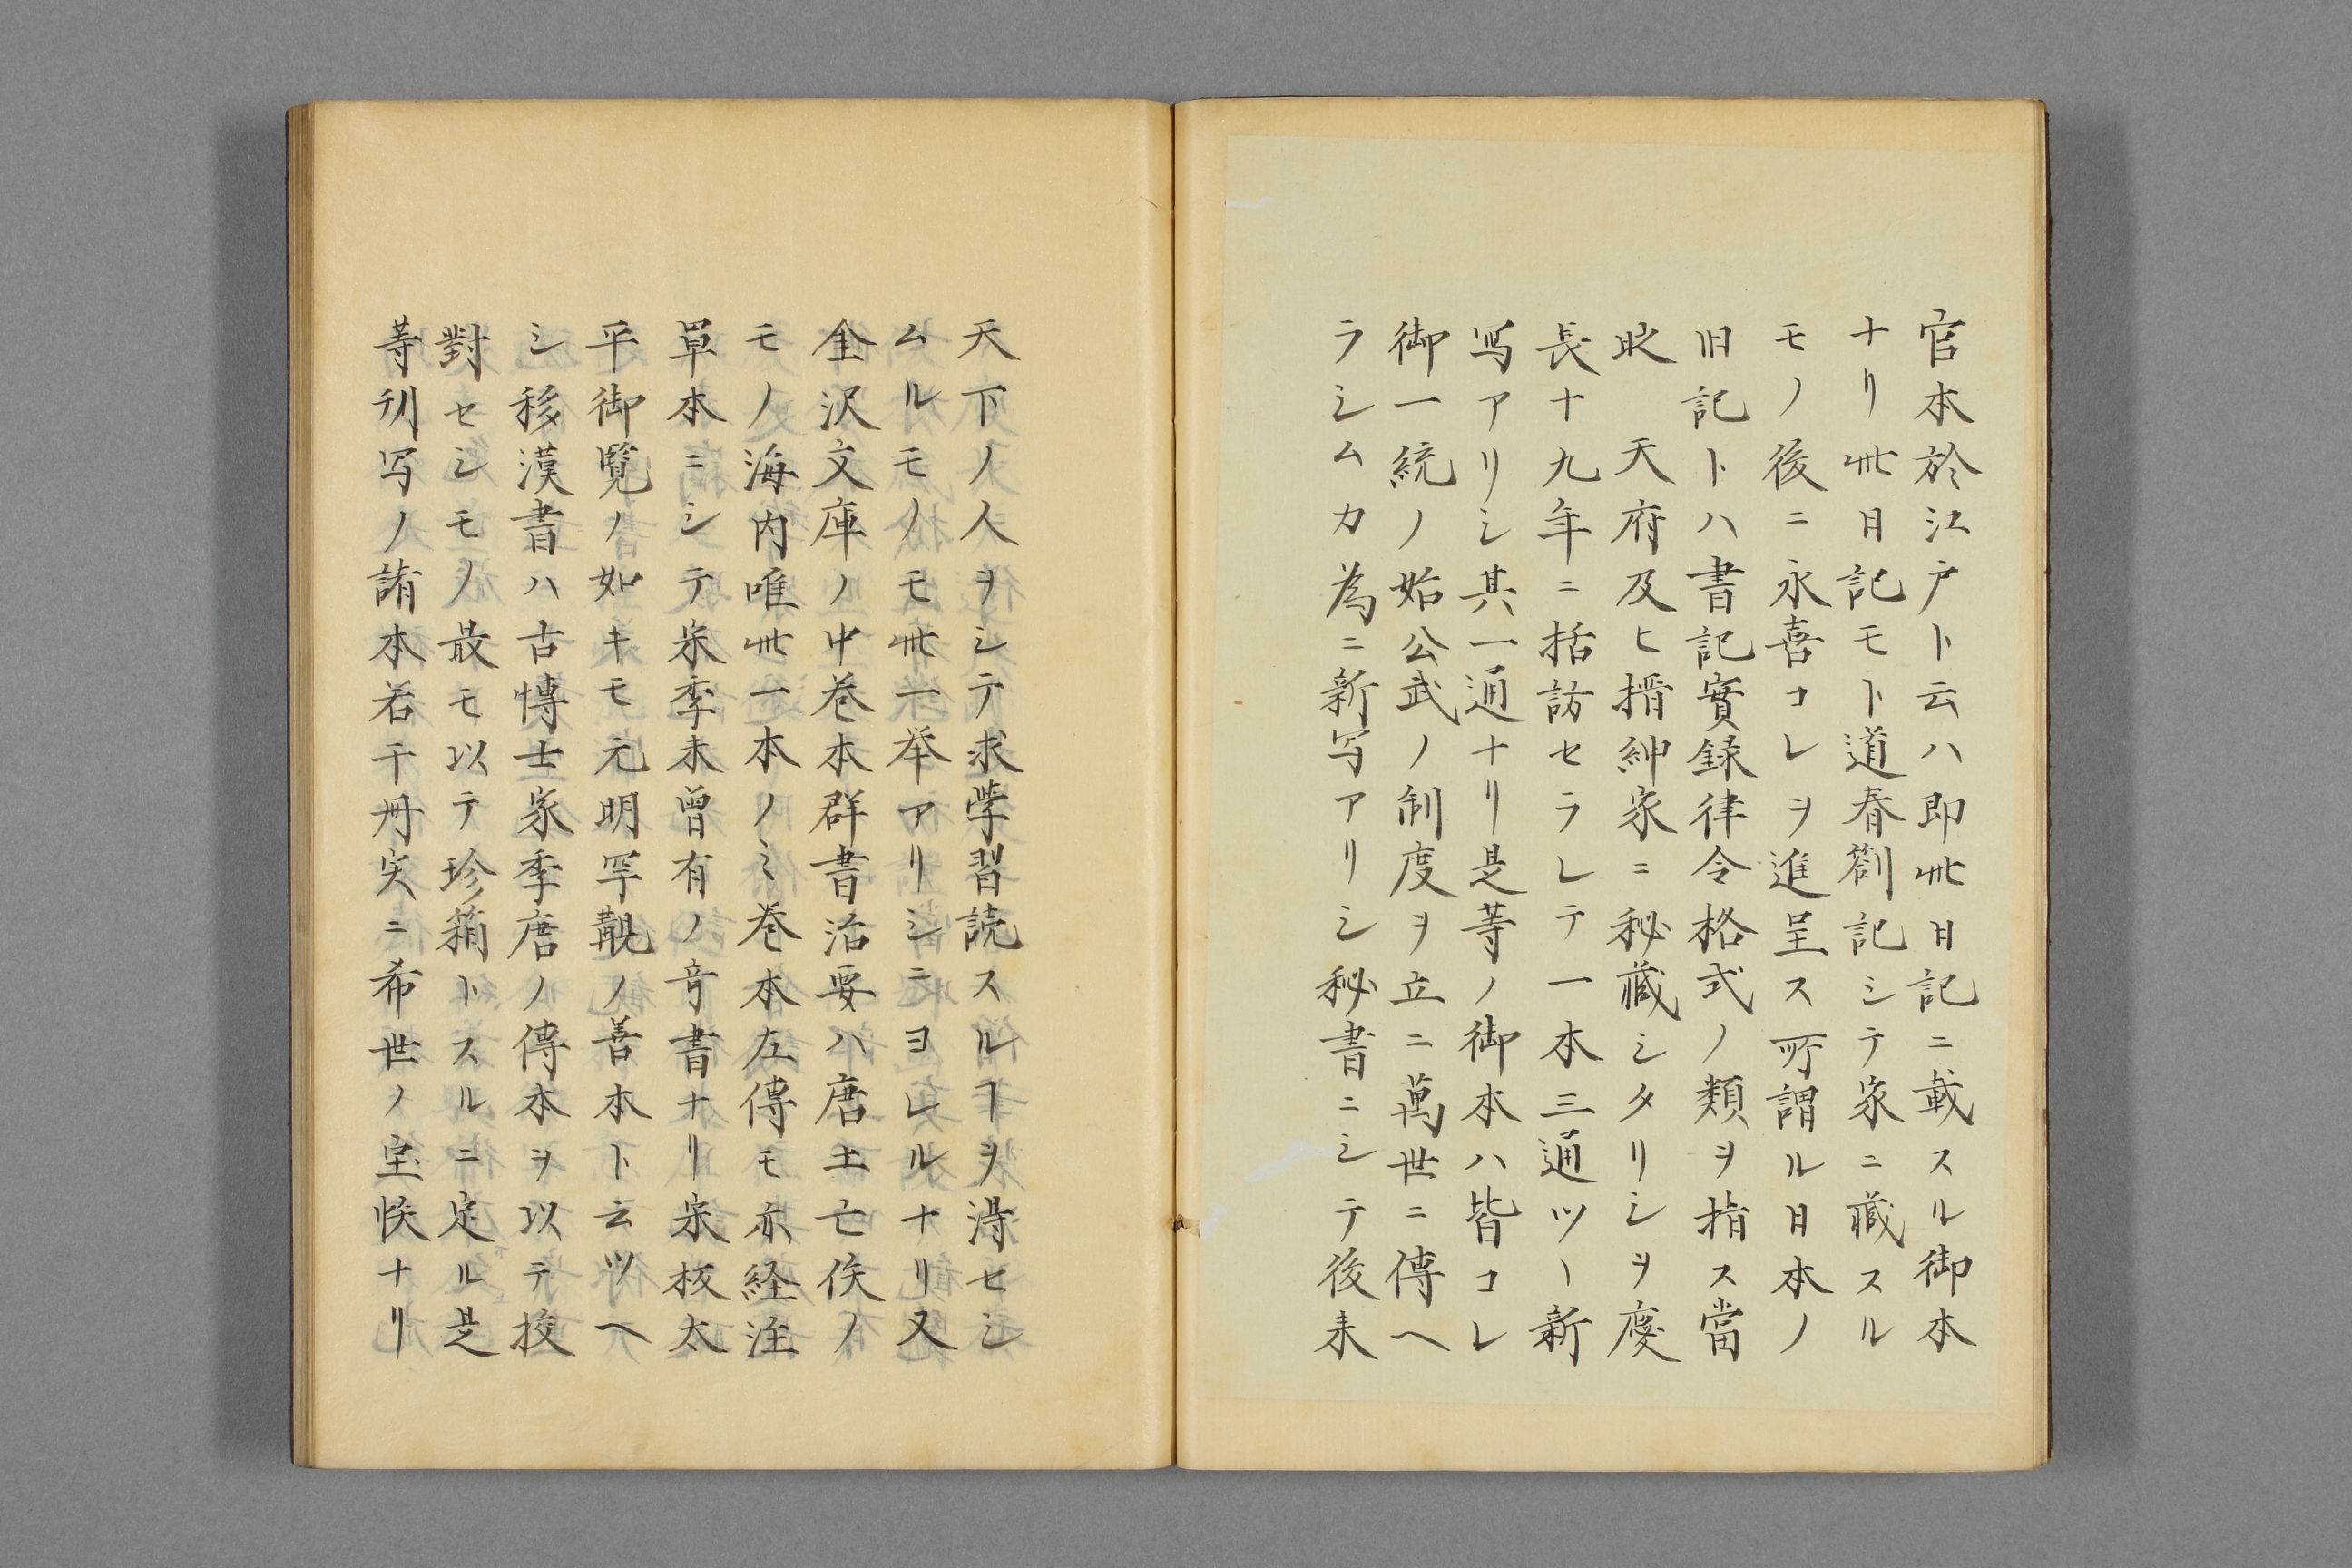 官本於江戸ト云ハ即此日記ニ載スル御本
ナリ此日記モト道春劄記シテ家ニ蔵スル
モノ後ニ永喜コレヲ進呈ス所謂ル日本ノ
旧記トハ書記實録律令格式ノ類ヲ指ス當
時　天府及ヒ搢紳家ニ秘蔵シタリシヲ慶
長十九年ニ括訪セラレテ一本三通ツヽ新
写アリシ其一通ナリ是等ノ御本ハ皆コレ
御一統ノ始公武ノ制度ヲ立ニ萬世ニ傳へ
ラシムカ為ニ新写アリシ秘書ニシテ後来
天下ノ人ヲシテ求學習読スルヿヲ得セシ
ムルモノモ此一举アリシニヨレルナリ又
金沢文庫ノ中巻本群書治要ハ唐土亡佚ノ
モノ海内唯此一本ノミ巻本左傳モ亦経注
單本ニシテ宋季未曾有ノ竒書ナリ宋板太
平御覧ノ如キモ元明罕覯ノ善本ト云ツヘ
シ移漢書ハ古博士家季唐ノ傳本ヲ以テ挍
對セシモノ最モ以テ珍箱トスルニ定ル是
等刊写ノ諸本若干冊実ニ希世ノ宝帙ナリ